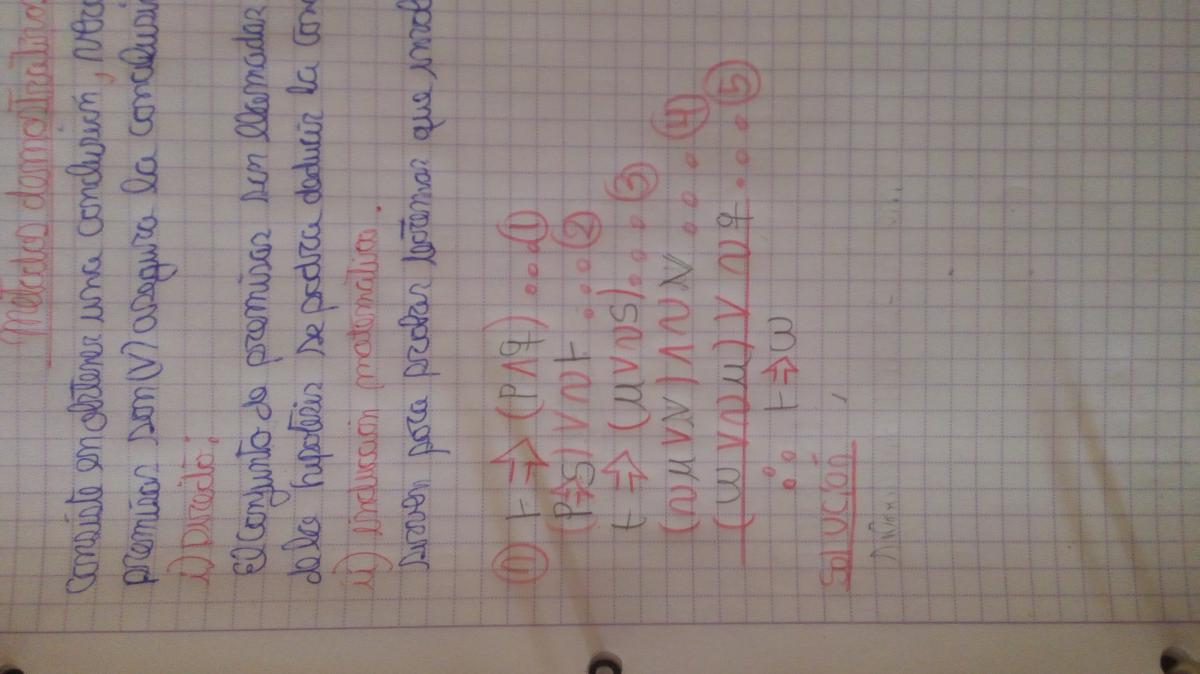 Metodos demostrativos
Consiste en obtener una conclusión,
premisas son (V) asegura la conclusión
i) Directo:
El conjunto de premisas son llamadas
de la hipotesis se podra deducir la
ii) inducción matemática.
Sirven para probar teoremas que
① t ⇒ (p ∧ q) ...①
(p ⇒ s) ∨ ~t ...②
t ⇒ (u ∨ ~s) ...③
(~u ∨ N) ∧ ~N ....④
(w ∨ ~u) ∨ ~q ....⑤
∴ t ⇒ w
Solución